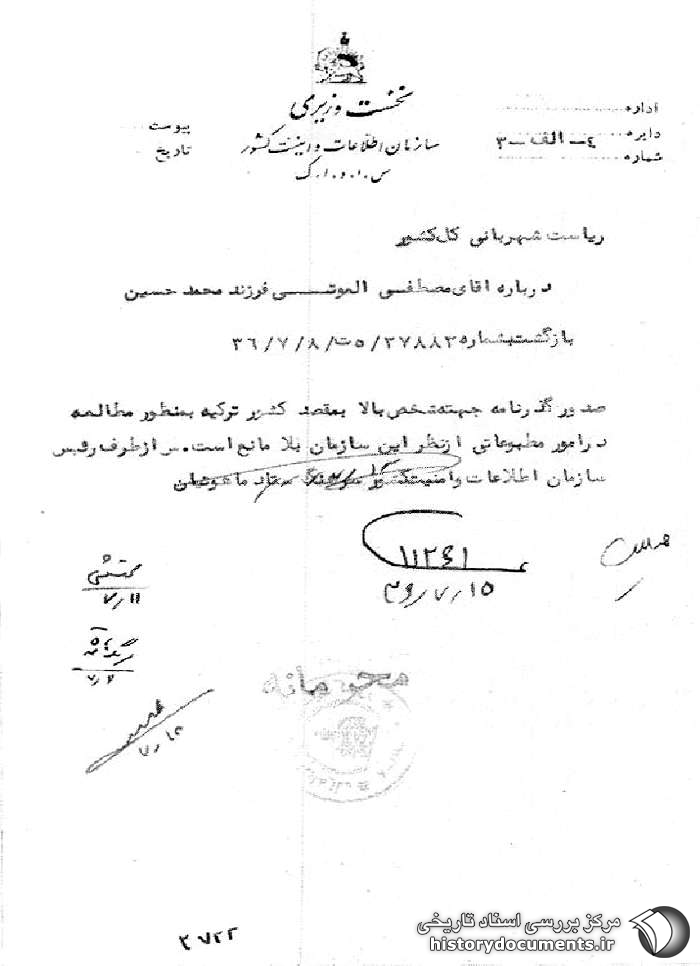 نخست وزیری
سازمان اطلاعات و امنیت کشور
س.ا.و.ا.ک
اداره
دایره
شماره
۴-الف-۳
پیوست
تاریخ
ریاست شهربانی کل کشور
درباره اقای مصطفی الموتی فرزند محمد حسین
بازگشت بشماره ۳۷۸۸۲/۵ت/۳۶/۷/۸
صدور گذرنامه جهته شخص بالا بمقصد کشور ترکیه بمنظور مطالعه
در امور مطبوعاتی از نظر این سازمان بلا مانع است. س از طرف رئیس
سازمان اطلاعات وامنیت کشور سرهنگ ستاد
۱۱۲۶۱
۳۶/۷/۱۵
۷/۱۱
محرمانه
۲۷۲۲
مرکز بررسی اسناد تاریخی
historydocuments.ir